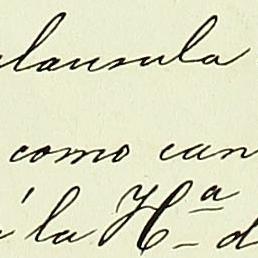 clausula
como can
á la Hª d